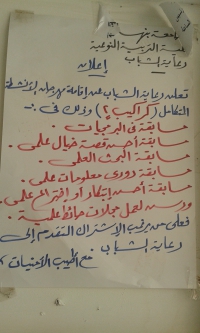 جامعة بنها
كلية التربية النوعية
رعاية الشباب
إعلان
تعلن رعاية الشباب عن إقامة مهرجان الأنشطة
التكامل (كراكيب ٢) وذلك فى :-
مسابقة فى البرمجيات .
مسابقة أحسن قصة خيال علمى .
مسابقة البحث العلمى .
مسابقة دورى معلومات علمى .
مسابقة أحسن إبتكار أو إختراع علمى .
ورسم لعمل مجلات حائط علمية .
فعلى من يرغب الإشتراك التقدم إلى
رعاية الشباب .
مع أطيب الأمنيات